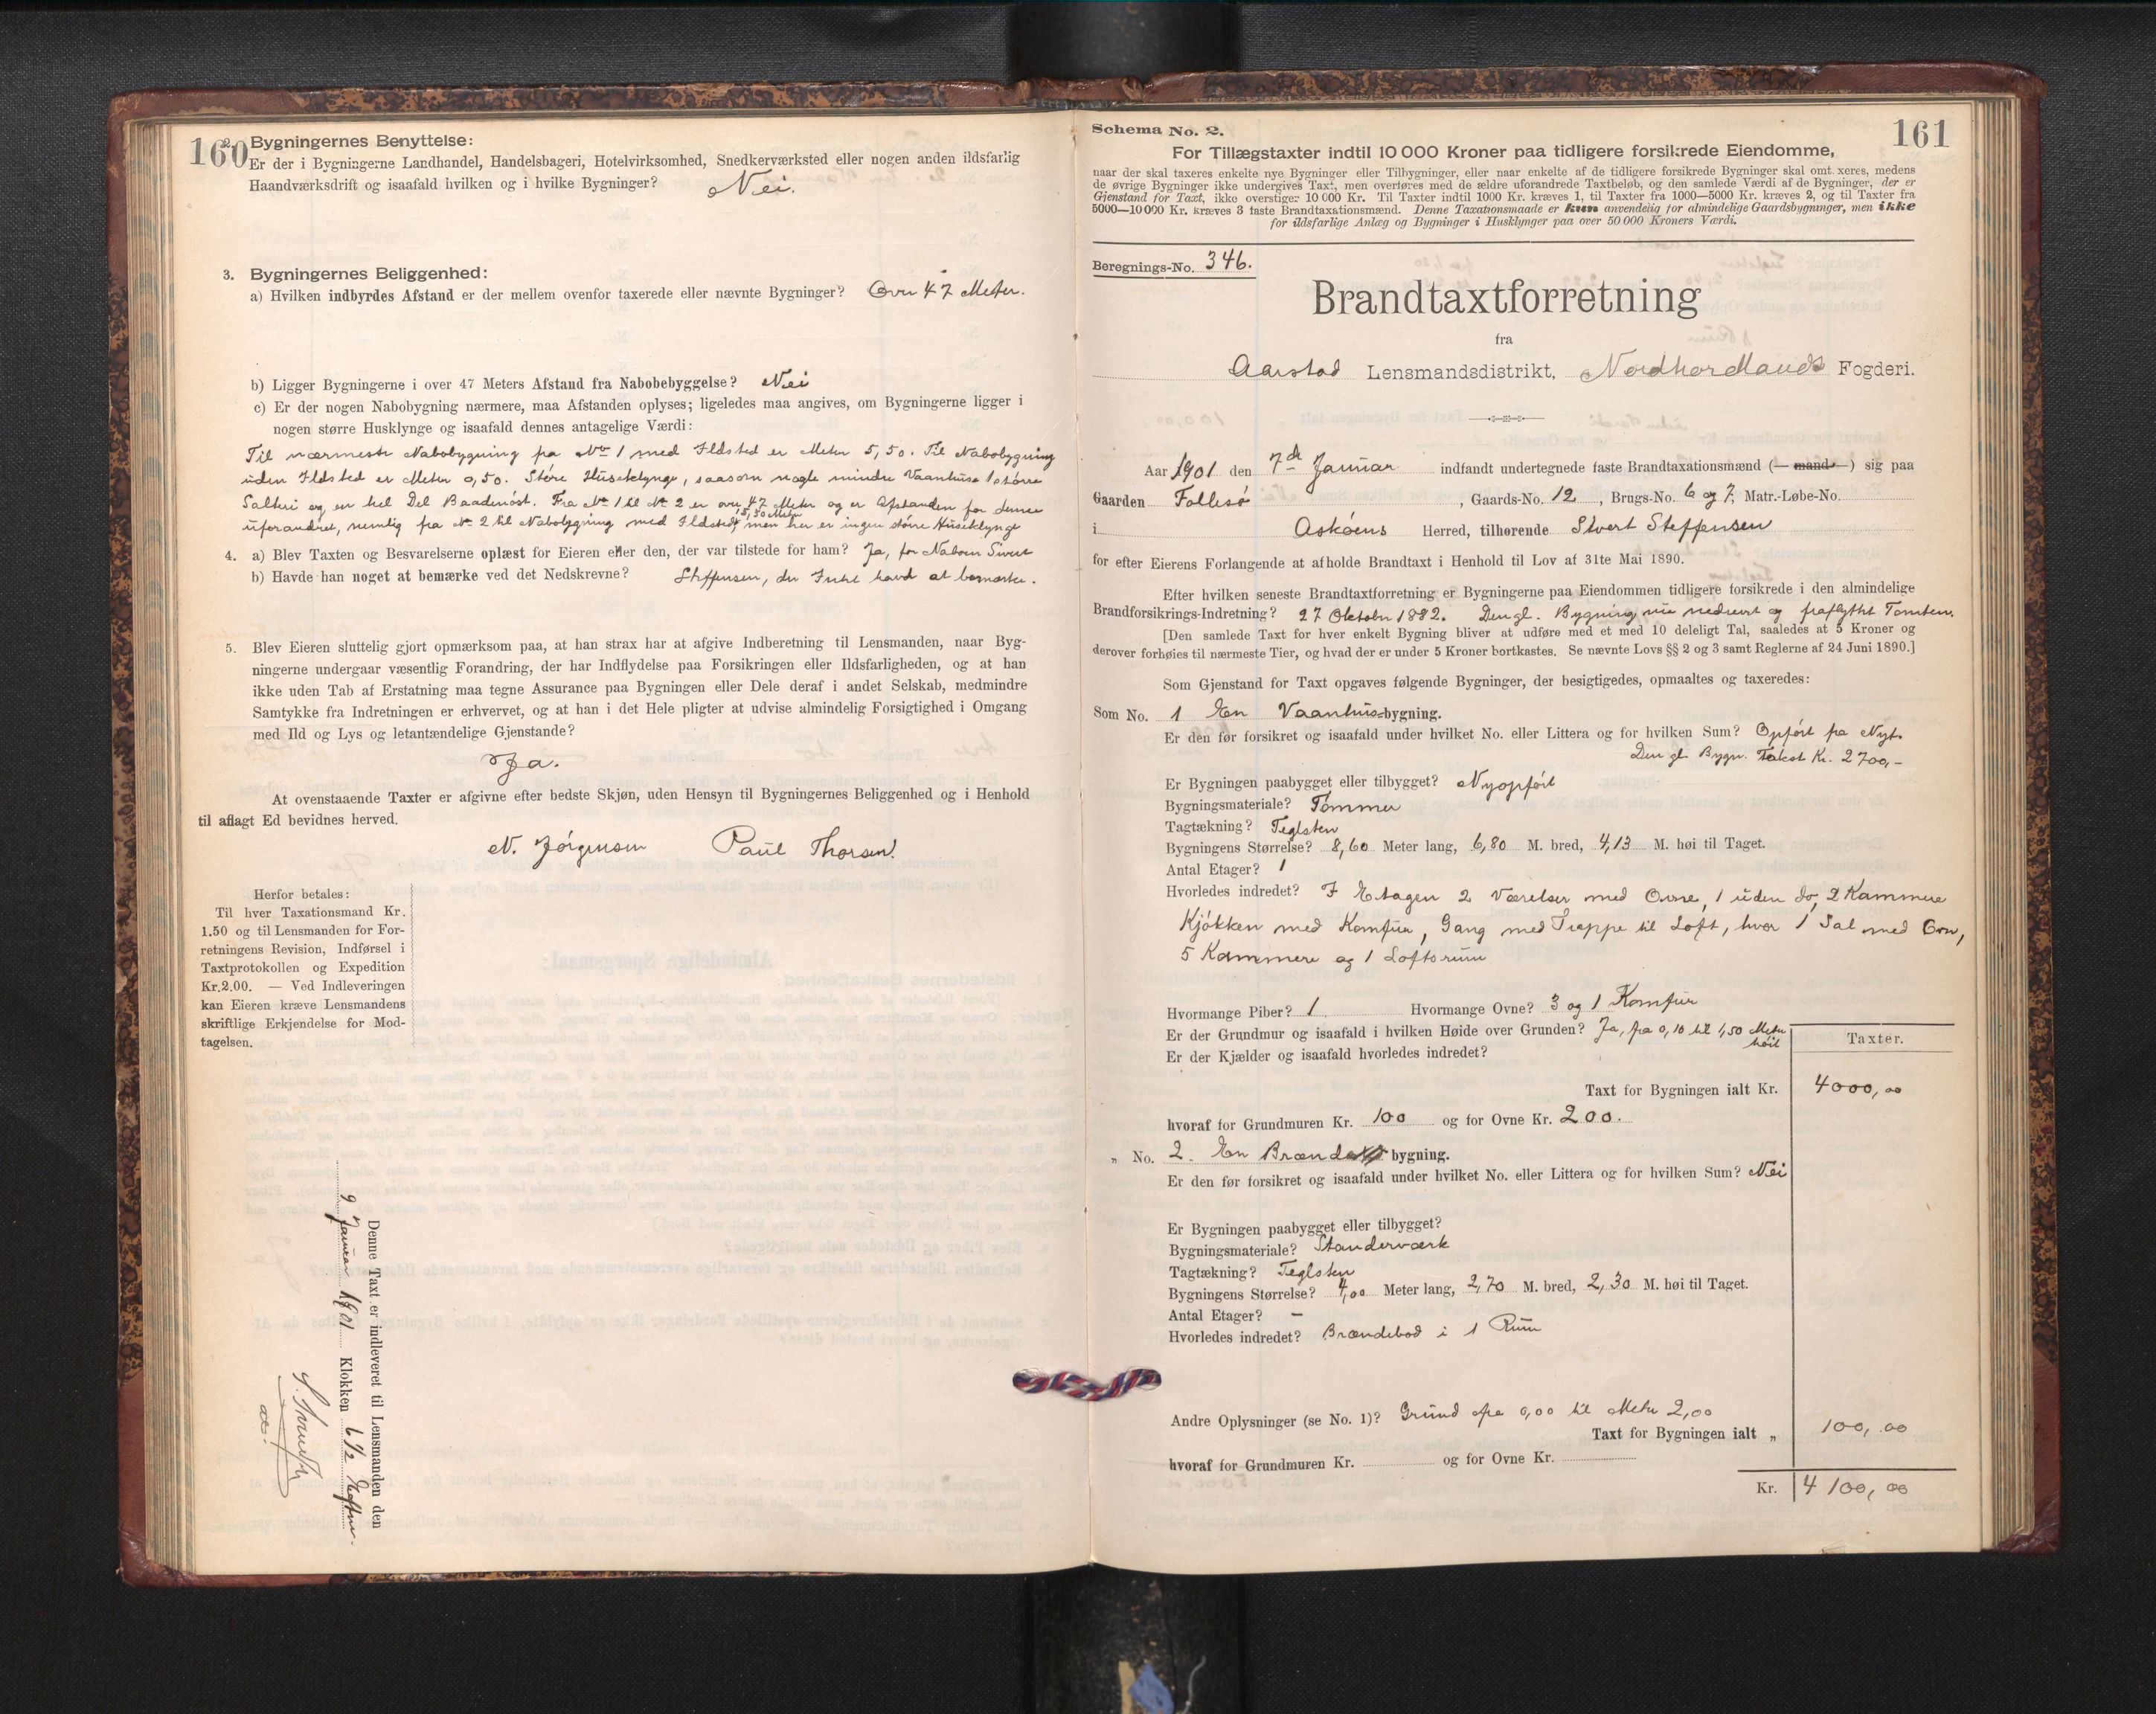 160
2. Bygningernes Benyttelse:
Er der i Bygningerne Landhandel, Handelsbageri, Hotelvirksomhed, Snedkerværksted eller nogen anden ildsfarlig
Haandværksdrift og isaafald hvilken og i hvilke Bygninger? Nei.
3. Bygningernes Beliggenhed:
a) Hvilken indbyrdes Afstand er der mellem ovenfor taxerede eller nævnte Bygninger? Over 47 Meter.
b) Ligger Bygningerne i over 47 Meters Afstand fra Nabobebyggelse? Nei
c) Er der nogen Nabobygning nærmere, maa Afstanden oplyses; ligeledes maa angives, om Bygningerne ligger i
nogen større Husklynge og isaafald dennes antagelige Værdi:
Til nærmeste Nabobygning fra No 1 med Ildsted er Meter 5,50. Til Nabobygning
uden Ildsted er Meter 0,50. Støre Huseklynge, saasom nogle mindre Vaanhuse 1 større
Salteri og en hel Del Baadenøst. Fra No 1 til No 2 er over 47 Meter og er Afstanden for denne
uforandret, nemlig fra No 2 til Nabobygning med Ildsted 15,50 Meter, men her er ingen større Huseklynge
4. a) Blev Taxten og Besvarelserne oplæst for Eieren eller den, der var tilstede for ham? Ja, for Naboen Sivert
b) Havde han noget at bemærke ved det Nedskrevne? Steffensen, der Intet havd at bemærke.
5. Blev Eieren sluttelig gjort opmærksom paa, at han strax har at afgive Indberetning til Lensmanden, naar Byg-
ningerne undergaar væsentlig Forandring, der har Indflydelse paa Forsikringen eller Ildsfarligheden, og at han
ikke uden Tab af Erstatning maa tegne Assurance paa Bygningen eller Dele deraf i andet Selskab, medmindre
Samtykke fra Indretningen er erhvervet, og at han i det Hele pligter at udvise almindelig Forsigtighed i Omgang
med Ild og Lys og letantændelige Gjenstande?
Ja.
At ovenstaaende Taxter er afgivne efter bedste Skjøn, uden Hensyn til Bygningernes Beliggenhed og i Henhold
til aflagt Ed bevidnes herved.
N. Jørgensen Paul Thorsen.
Herfor betales:
Til hver Taxationsmand Kr.
1.50 og til Lensmanden for For-
retningens Revision, Indførsel i
Taxtprotokollen og Expedition
Kr.2.00. — Ved Indleveringen
kan Eieren kræve Lensmandens
skriftlige Erkjendelse for Mod-
tagelsen.
Denne Taxt er indleveret til Lensmanden den
9 Januar 1901 Klokken 6 1/2 Efterm.
161
Schema No. 2.
For Tillægstaxter indtil 10 000 Kroner paa tidligere forsikrede Eiendomme,
naar der skal taxeres enkelte nye Bygninger eller Tilbygninger, eller naar enkelte af de tidligere forsikrede Bygninger skal omtaxeres, medens
de øvrige Bygninger ikke undergives Taxt, men overføres med de ældre uforandrede Taxtbeløb, og den samlede Værdi af de Bygninger, der er
Gjenstand for Taxt, ikke overstiger 10 000 Kr. Til Taxter indtil 1000 Kr. kræves 1, til Taxter fra 1000—5000 Kr. kræves 2, og til Taxter fra
5000—10 000 Kr. kræves 3 faste Brandtaxationsmænd. Denne Taxationsmaade er kun anvendelig for almindelige Gaardsbygninger, men ikke
for ildsfarlige Anlæg og Bygninger i Husklynger paa over 50 000 Kroners Værdi.
Beregnings-No. 346.
Brandtaxtforretning
fra
Aarstad Lensmandsdistrikt, Nordhordlands Fogderi.
Aar 1901 den 7de Januar indfandt undertegnede faste Brandtaxationsmænd (— mand —) sig paa
Gaarden Follesø, Gaards-No. 12, Brugs-No. 6 og 7, Matr.-Løbe-No.
i Askøens Herred, tilhørende Sivert Steffensen
for efter Eierens Forlangende at afholde Brandtaxt i Henhold til Lov af 31te Mai 1890.
Efter hvilken seneste Brandtaxtforretning er Bygningerne paa Eiendommen tidligere forsikrede i den almindelige
Brandforsikrings-Indretning? 27 Oktober 1882. Den gl. Bygning nu nedrevt og fraflyttet Tomten.
[Den samlede Taxt for hver enkelt Bygning bliver at udføre med et med 10 deleligt Tal, saaledes at 5 Kroner og
derover forhøies til nærmeste Tier, og hvad der er under 5 Kroner bortkastes. Se nævnte Lovs §§ 2 og 3 samt Reglerne af 24 Juni 1890.]
Som Gjenstand for Taxt opgaves følgende Bygninger, der besigtigedes, opmaaltes og taxeredes:
Som No. 1 En Vaanhus-bygning.
Er den før forsikret og isaafald under hvilket No. eller Littera og for hvilken Sum? Opført fra Nyt.
Den gl. Bygn. Takst Kr. 2700,-
Er Bygningen paabygget eller tilbygget? Nyopført
Bygningsmateriale? Tømmer
Tagtækning? Teglsten
Bygningens Størrelse? 8,60 Meter lang, 6,80 M. bred, 4,13 M. høi til Taget.
Antal Etager? 1
Hvorledes indredet? I Etagen 2 Værelser med Ovne, 1 uden do, 2 Kammere
Kjøkken med Komfur, Gang med Trappe til Loft, hvor 1 Sal med Ovn,
5 Kammere og 1 Loftsrum
Hvormange Piber? 1 Hvormange Ovne? 3 og 1 Komfur
Er der Grundmur og isaafald i hvilken Høide over Grunden? Ja, fra 0,10 til 1,50 Meter høit
Er der Kjælder og isaafald hvorledes indredet?
Taxter.
Taxt for Bygningen ialt Kr. 4000,00
hvoraf for Grundmuren Kr. 100 og for Ovne Kr. 200.
„ No. 2. En Brænde bygning.
Er den før forsikret og isaafald under hvilket No. eller Littera og for hvilken Sum? Nei
Er Bygningen paabygget eller tilbygget?
Bygningsmateriale? Standerværk
Tagtækning? Teglsten
Bygningens Størrelse? 4,00 Meter lang, 2,70 M. bred, 2,30 M. høi til Taget.
Antal Etager? –
Hvorledes indredet? Brændebod i 1 Rum
Andre Oplysninger (se No. 1)? Grund fra 0,00 til Meter 2,00
Taxt for Bygningen ialt „ 100,00
hvoraf for Grundmuren Kr. og for Ovne Kr.
Kr. 4100,00